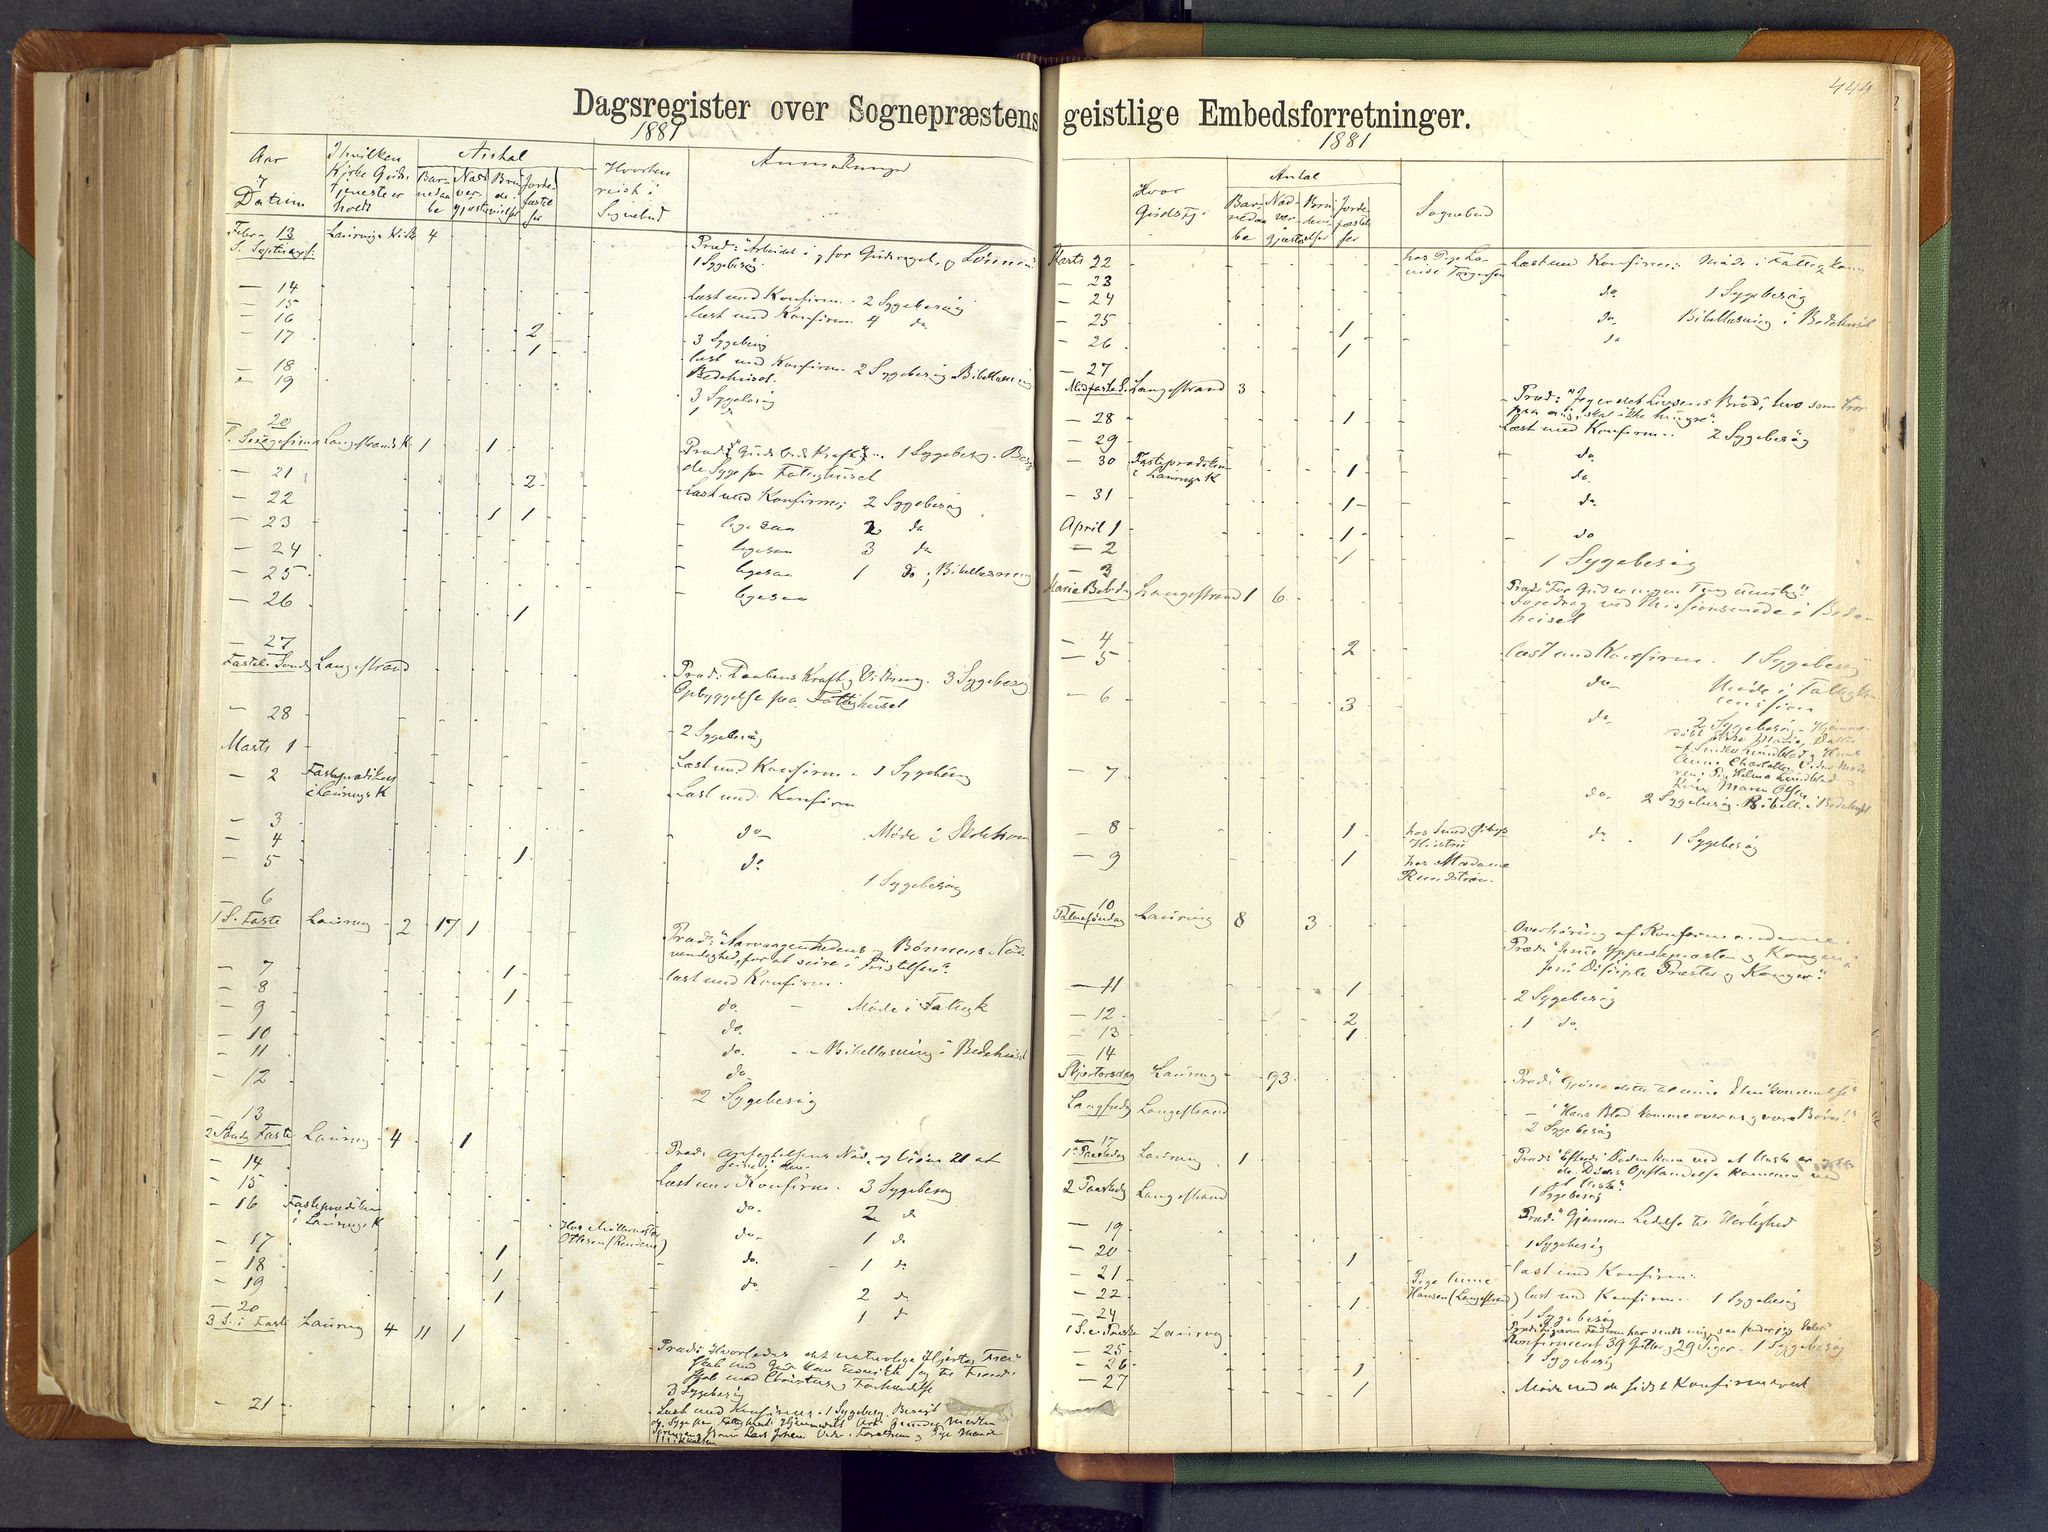 Dagsregister over Sognepræstens
1881
Aar
Datum
I hvilken
Kirke Guds-
tjeneste er
holdt
Antal
Bar-
nedaa
be
Nad
ver-
gjæster
Bru
de-
vielser
Jorde-
fæstel
ser
Hvorhen
reist i
Sognebud
Anmærkninger
Febr. 13
S. Septuages.
Laurvigs Kirk
4
Præd: "Arbeidet i og for Guds rige, og Lønnen"
1 Sygebesøg.
— 14
Læst med Konfirm. 2 Sygebesøg
— 15
læst med Konfirm 4 do
— 16
2
3 Sygebesøg
— 17
1
læst med Konfirm. 2 Sygebesøg Bibellæsning
Bedehuset.
— 18
3 Sygebesøg
— 19
1 do
20
S. Sexagesima Langestrands K.
1
1
Præd: "Guds Ords Kraft" 1 Sygebesøg.
de Syge paa Fattighuset
— 21
2
Læst med Konfirm; 2 Sygebesøg
— 22
1 1
ligesaa 2 do
— 23
ligesaa 3 do
— 24
ligesaa 1 do; Bibellæsning
— 25
ligesaa
— 26
1
— 27
Fastel. Sønd Langestrand
Præd: Daabens Kraft og Virkning. 3 Sygebesøg
Opbyggelse paa Fattighuset
— 28
2 Sygebesøg
Marts 1
Læst med Konfirm - 1 Sygebesøg
— 2
Fasteprædiken
i Laurvigs K
Læst med Konfirm
— 3
do Møde i Skolekom
— 4
1
do
— 5
1 Sygebesøg
6
1 S. Faste Laurvig
2 17 1
Præd: "Aarvaagenhedens og Bønnens Nød-
vendighed, for at seire i Fristelsen".
— 7
1
læst med Konfirm.
— 8
1
do. — Møde i Fattigk
— 9
do.
— 10
do. — Bibellæsning i Bedehuset
— 11
do
— 12
2 Sygebesøg
— 13
2 Sønd. Faste Laurvig
4 1
Præd: Anfegtelsens Nød, og Veien til at
seire i den.
— 14
Læst med Konfirm. 3 Sygebesøg
— 15
do. 2 do
— 16
Fasteprædiken
i Laurvigs K
Hos Møllermester
Ottesen (Rendene)
do 1 do
— 17
1
do. 1 do
— 18
1
do 2 do
— 19
1
1 do
— 20
3 S. i Faste Laurvig
4 11 1
Præd: Hvorledes det naturlige Hjertes Fien
skab med Gud kan omvendes til Fiend-
skab med Christus Forhærdelse
3 Sygebesøg
— 21
Læst med Konfirm. 1 Sygebesøg. Besøgt
geistlige Embedsforretninger.
444
1881
Hvor
Gudstj.
Antal
Bar-
nedaa
be
Nad
ver-
gjæster
Bru
devi
elser
Jorde
fæstel
ser
Sognebud
Marts 22
hos Pige Lo-
vise Torgersen
Læst med Konfirm; Møde i Fattigkom
— 23
do 1 Sygebesøg
— 24
do. Bibellæsning i Bedehuset
— 25
1
do
— 26
1
— 27
Midfaste S. Langestrand
3
Præd: "Jeg er det Livsens Brød, hvo som tror
paa mig, skal ikke hungre".
— 28
1
Læst med Konfirm. 2 Sygebesøg
— 29
do.
— 30
Fasteprædiken
i Laurvigs K
1
do.
— 31
1
do.
April 1
1
do
— 2
1
1 Sygebesøg
— 3
Mariæ Bebud Langestrand
1 6
Præd: "For Gud er ingen Ting umulig".
Foredrag ved Missionsmøde i Bede-
huset
— 4
2
læst med Konfirm. 1 Sygebesøg
— 5
do Møde i Fattigkom
mission
— 6
3
do. 2 Sygebesøg - Hjemme-
døbt
— 7
do. 2 Sygebesøg. Bibell. i Bedehuset
— 8
1
hos Smed
Hustru
do. 1 Sygebesøg
— 9
1
hos Madame
Rundstrøm.
10
Palmesøndag Laurvig
8 3
Overhøring af Konfirmanderne.
Præd: "Jesus Ypperstepræsten og Kongen;
Jesu Disciple Præster og Konger".
— 11
1
2 Sygebesøg
— 12
2
1 do.
— 13
1
— 14
Skjærtorsdag Laurvig
93
Præd: "Gjører dette til min Ihukommelse"
Langfredag Langestrand
— "Hans Blod komme over os og vore Børn!"
2 Sygebesøg
— 17
1ste Paaskedag Laurvig
1
Præd: "Efterdi Døden kom ved et Mske er
de Dødes Opstandelse kommen ved
et Mske".
1 Sygebesøg
2 Paaskedag Langestrand
Præd: "Gjennem Lidelse til Herlighed
— 19
1 Sygebesøg
— 20
1
læst med Konfirm.
— 21
Pige Anne
Hansen (Langestrand)
læst med Konfirm. 1 Sygebesøg
— 22
1
1 Sygebesøg
— 24
1 S. e. Paaske Laurvig
Præd: Ligesom Faderen har sendt mig, saa sender jeg Eder"
Konfirmeret 39 Gutter og 29 Piger. 1 Sygebesøg
— 25
1 Sygebesøg
— 26
1
Møde med de sidst Konfirmerede
— 27
1